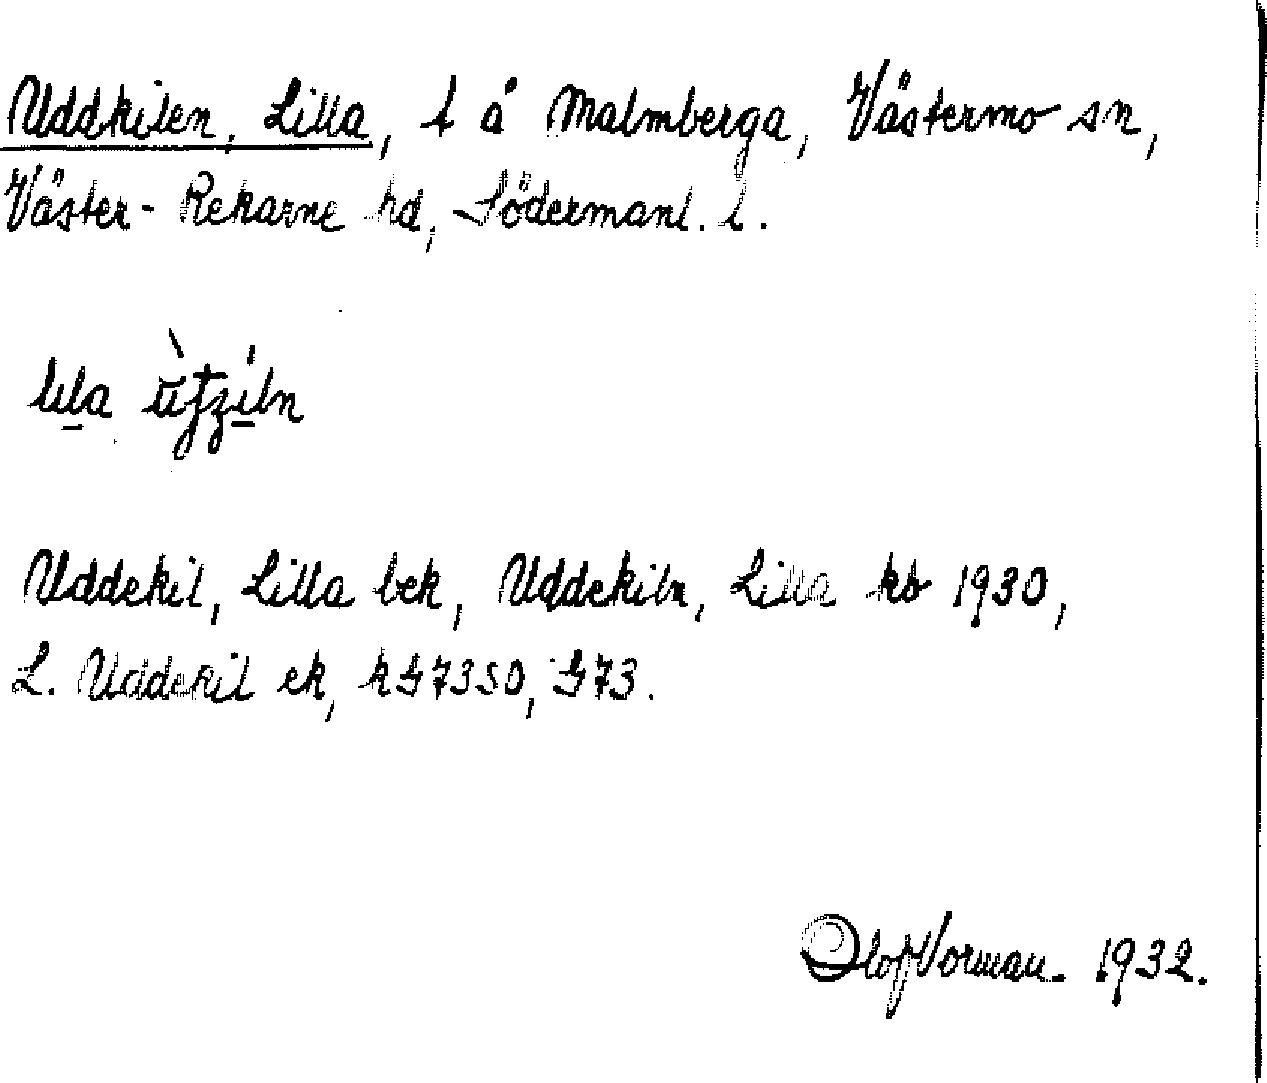 Uddkilen, Lilla, t å Malmberga, Västermo sn,
Väster-Rekarne hd, Södermanl. l.
lila
Uddekil, Lilla bek, Uddekiln, Lilla kb 1930,
L. Uddekil ek, k G 7350, G 73.
Olof Vorman. 1932.